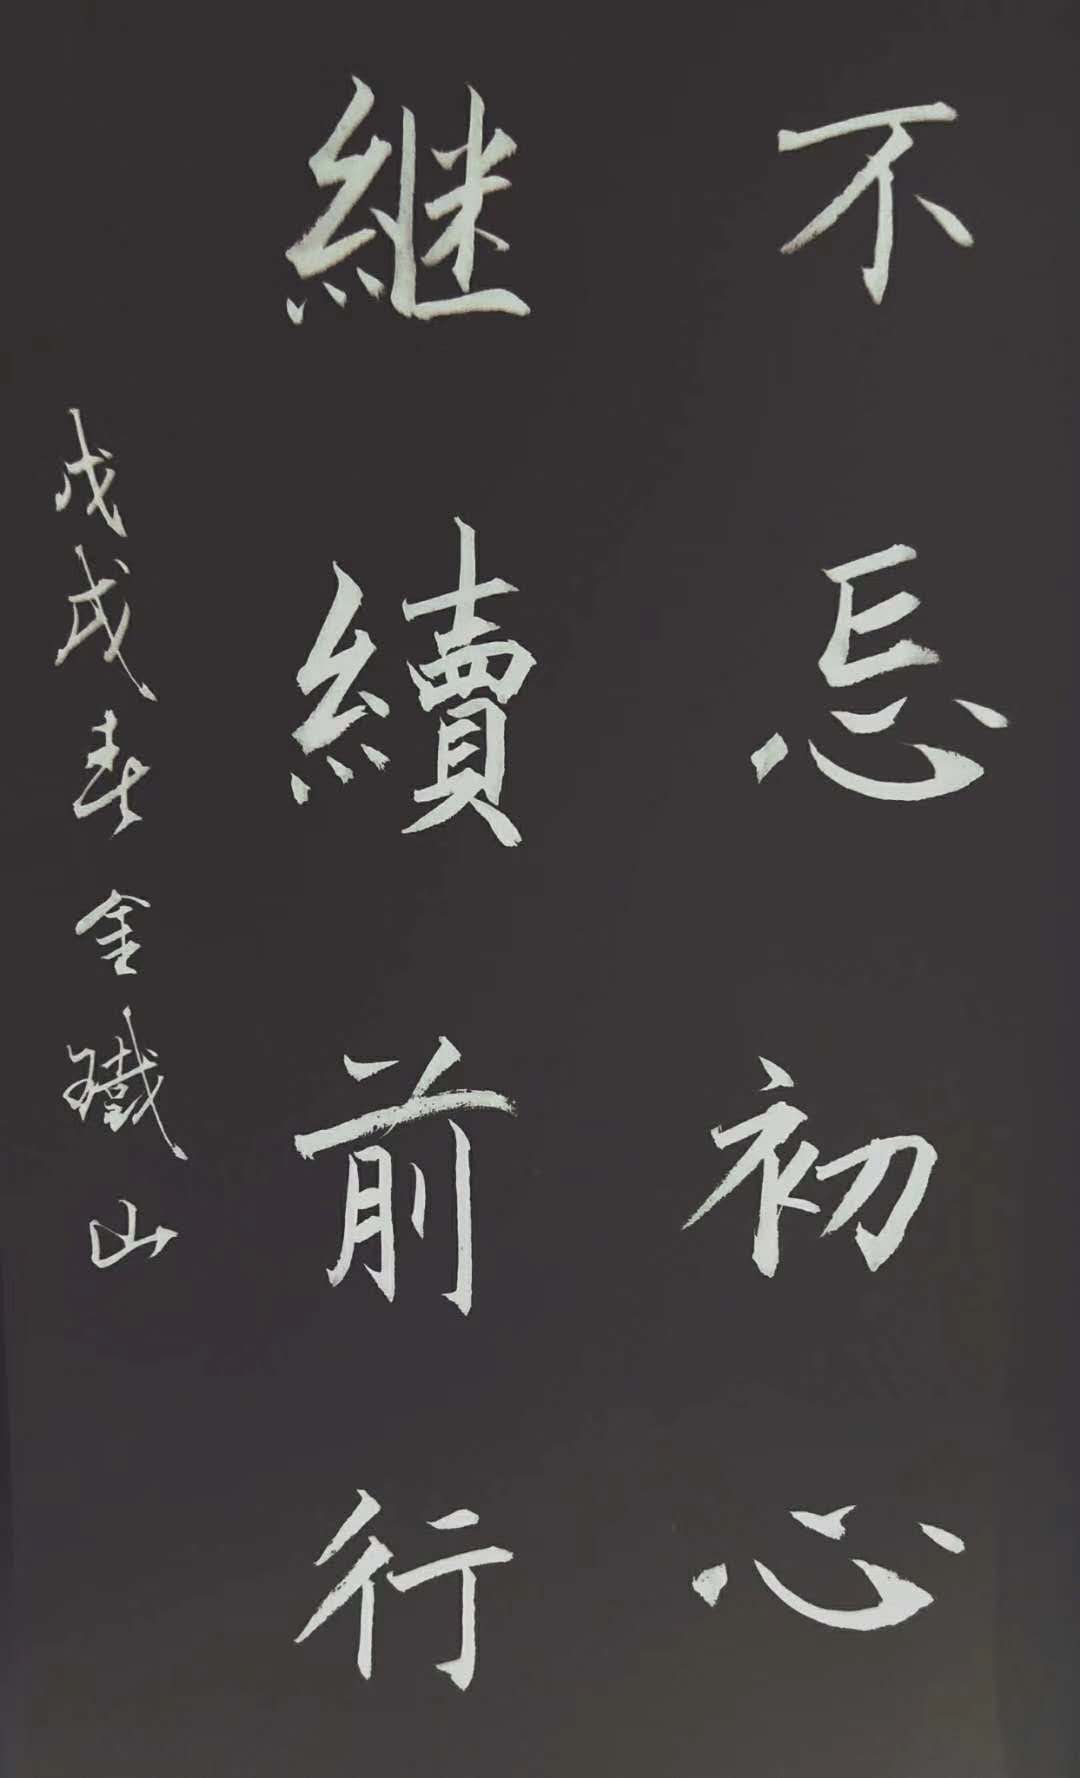 不忘初心
继續前行
戊戌春金鐵山